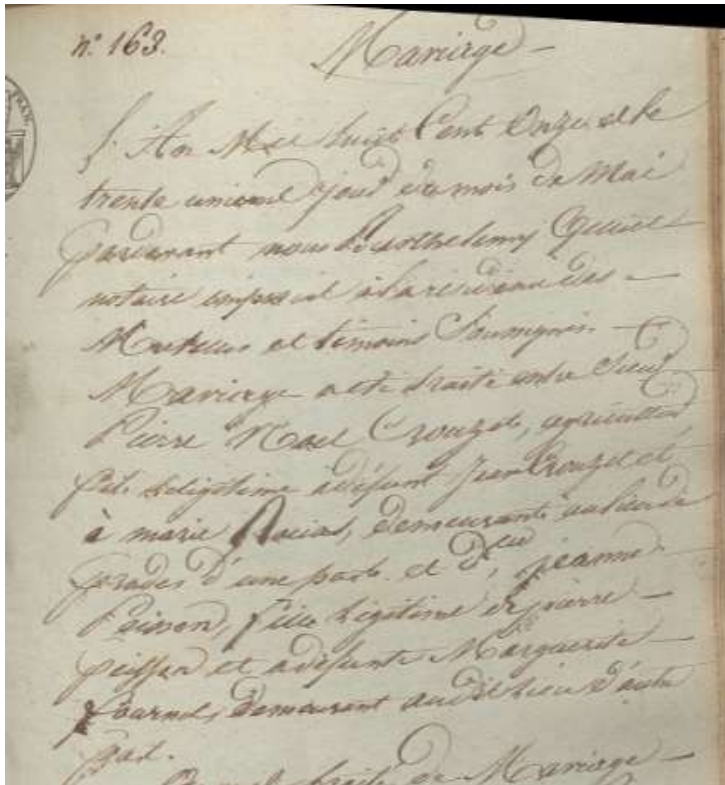 n° 163.
Mariage
L'An Mil huit Cent Onze et le
trente unieme jour du mois de Mai
pardevant nous Barthelemy
notaire imperial a la residence des
et temoins Soussignés
Mariage a été traité entre Sieur
Pierre Noel Crouzet, agriculteur
fils legitime a défunt Jean Crouzet et
à marie, demeurant au lieu de
prades d'une part. et Dlle jeanne
Peisson, fille legitime de pierre
peisson et a défunte Marguerite
fournel, demeurant audit lieu d'autre
part.
traité de Mariage